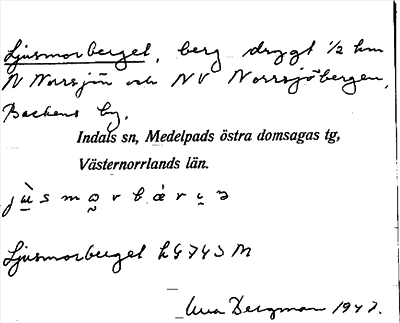 Ljusmorberget, berg drygt 1/2 km
N Norrsjön och NV Norrsjöbergen,
Backens by.
Indals sn, Medelpads östra domsagas tg,
Västernorrlands län.
Ljusmorberget
Bergman 194